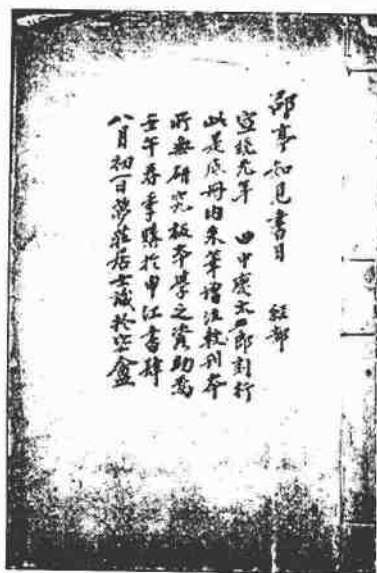 郘亭知見書目　經部
宣統元年　田中慶太郎刻行
此是底冊內朱筆增注較刊本
所無研究板本學之資助焉
壬午春季購於申江書肆
八月初一日夢莊居士識於盦